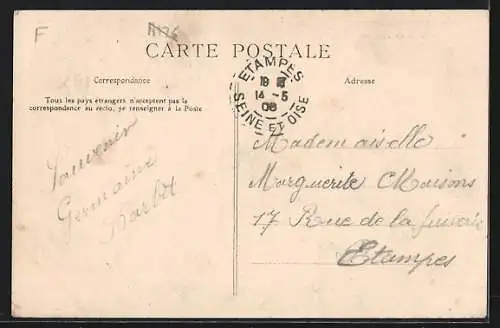 F
CARTE POSTALE
Correspondance
Tous les pays étrangers n'acceptent pas la
correspondance au recto, se renseigner à la Poste
Souvenir
Germaine
Barbot
ETAMPES
14 - 5
08
SEINE ET OISE
Adresse
Mademoiselle
Marguerite
17 Rue de la Juiverie
Etampes